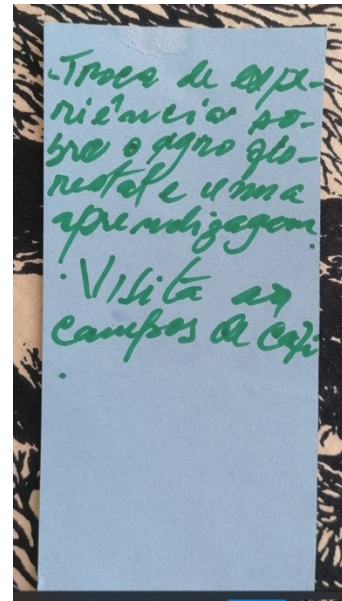 . Troca de expe-
riência so-
bre o agro flo-
restal e uma
aprendizagem.
. Visita ao
campos de café
.